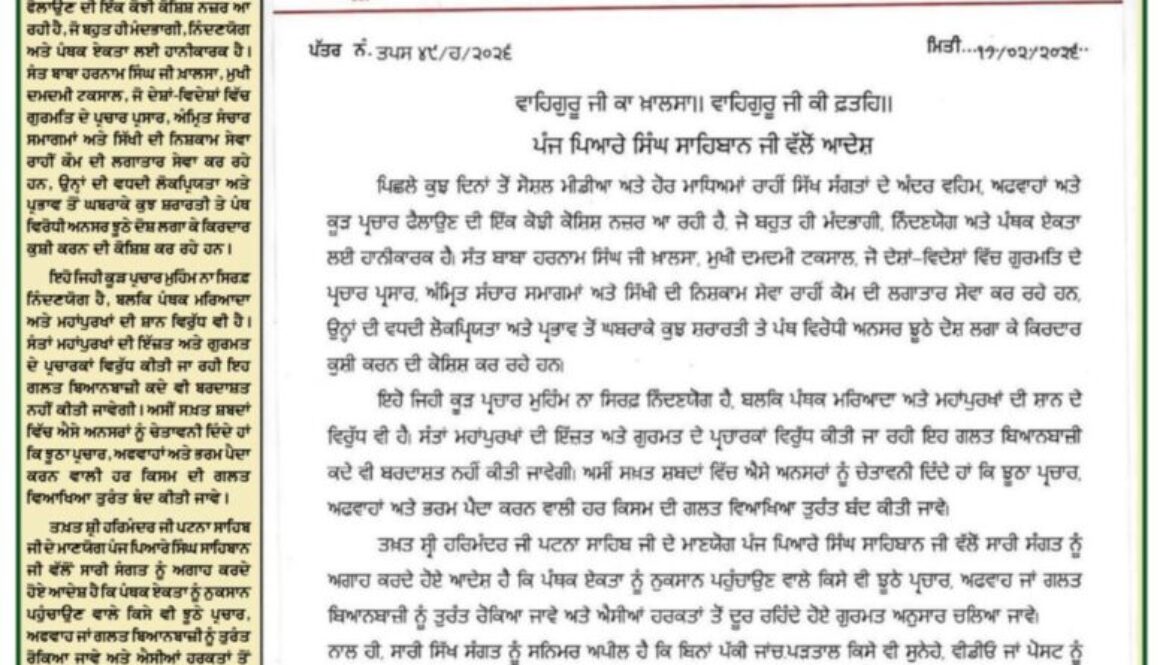 ਫੈਲਾਉਣ ਦੀ ਇੱਕ ਕੋਝੀ ਕੋਸ਼ਿਸ਼ ਨਜ਼ਰ ਆ
ਰਹੀ ਹੈ, ਜੋ ਬਹੁਤ ਹੀ ਮੰਦਭਾਗੀ, ਨਿੰਦਣਯੋਗ
ਅਤੇ ਪੰਥਕ ਏਕਤਾ ਲਈ ਹਾਨੀਕਾਰਕ ਹੈ।
ਸੰਤ ਬਾਬਾ ਹਰਨਾਮ ਸਿੰਘ ਜੀ ਖ਼ਾਲਸਾ, ਮੁਖੀ
ਦਮਦਮੀ ਟਕਸਾਲ, ਜੋ ਦੇਸ਼ਾਂ-ਵਿਦੇਸ਼ਾਂ ਵਿੱਚ
ਗੁਰਮਤਿ ਦੇ ਪ੍ਰਚਾਰ ਪ੍ਰਸਾਰ, ਅੰਮ੍ਰਿਤ ਸੰਚਾਰ
ਸਮਾਗਮਾਂ ਅਤੇ ਸਿੱਖੀ ਦੀ ਨਿਸ਼ਕਾਮ ਸੇਵਾ
ਰਾਹੀਂ ਕੌਮ ਦੀ ਲਗਾਤਾਰ ਸੇਵਾ ਕਰ ਰਹੇ
ਹਨ, ਉਨ੍ਹਾਂ ਦੀ ਵਧਦੀ ਲੋਕਪ੍ਰਿਯਤਾ ਅਤੇ
ਪ੍ਰਭਾਵ ਤੋਂ ਘਬਰਾਕੇ ਕੁਝ ਸ਼ਰਾਰਤੀ ਤੇ ਪੰਥ
ਵਿਰੋਧੀ ਅਨਸਰ ਝੂਠੇ ਦੋਸ਼ ਲਗਾ ਕੇ ਕਿਰਦਾਰ
ਕੁਸ਼ੀ ਕਰਨ ਦੀ ਕੋਸ਼ਿਸ਼ ਕਰ ਰਹੇ ਹਨ।
ਇਹੋ ਜਿਹੀ ਕੂੜ ਪ੍ਰਚਾਰ ਮੁਹਿੰਮ ਨਾ ਸਿਰਫ਼
ਨਿੰਦਣਯੋਗ ਹੈ, ਬਲਕਿ ਪੰਥਕ ਮਰਿਆਦਾ
ਅਤੇ ਮਹਾਂਪੁਰਖਾਂ ਦੀ ਸ਼ਾਨ ਵਿਰੁੱਧ ਵੀ ਹੈ।
ਸੰਤਾਂ ਮਹਾਂਪੁਰਖਾਂ ਦੀ ਇੱਜ਼ਤ ਅਤੇ ਗੁਰਮਤ
ਦੇ ਪ੍ਰਚਾਰਕਾਂ ਵਿਰੁੱਧ ਕੀਤੀ ਜਾ ਰਹੀ ਇਹ
ਗਲਤ ਬਿਆਨਬਾਜ਼ੀ ਕਦੇ ਵੀ ਬਰਦਾਸ਼ਤ
ਨਹੀਂ ਕੀਤੀ ਜਾਵੇਗੀ। ਅਸੀਂ ਸਖ਼ਤ ਸ਼ਬਦਾਂ
ਵਿੱਚ ਐਸੇ ਅਨਸਰਾਂ ਨੂੰ ਚੇਤਾਵਨੀ ਦਿੰਦੇ ਹਾਂ
ਕਿ ਝੂਠਾ ਪ੍ਰਚਾਰ, ਅਫਵਾਹਾਂ ਅਤੇ ਭਰਮ ਪੈਦਾ
ਕਰਨ ਵਾਲੀ ਹਰ ਕਿਸਮ ਦੀ ਗਲਤ
ਵਿਆਖਿਆ ਤੁਰੰਤ ਬੰਦ ਕੀਤੀ ਜਾਵੇ।
ਤਖ਼ਤ ਸ਼੍ਰੀ ਹਰਿਮੰਦਰ ਜੀ ਪਟਨਾ ਸਾਹਿਬ
ਜੀ ਦੇ ਮਾਣਯੋਗ ਪੰਜ ਪਿਆਰੇ ਸਿੰਘ ਸਾਹਿਬਾਨ
ਜੀ ਵੱਲੋਂ ਸਾਰੀ ਸੰਗਤ ਨੂੰ ਅਗਾਹ ਕਰਦੇ
ਹੋਏ ਆਦੇਸ਼ ਹੈ ਕਿ ਪੰਥਕ ਏਕਤਾ ਨੂੰ ਨੁਕਸਾਨ
ਪਹੁੰਚਾਉਣ ਵਾਲੇ ਕਿਸੇ ਵੀ ਝੂਠੇ ਪ੍ਰਚਾਰ,
ਅਫਵਾਹ ਜਾਂ ਗਲਤ ਬਿਆਨਬਾਜ਼ੀ ਨੂੰ ਤੁਰੰਤ
ਰੋਕਿਆ ਜਾਵੇ ਅਤੇ ਐਸੀਆਂ ਹਰਕਤਾਂ ਤੋਂ
ਪੱਤਰ ਨੰ. ਤਪਸ ੪੯/ਹ/੨੦੨੬ ਮਿਤੀ...੧੭/੦੨/੨੦੨੬..
ਵਾਹਿਗੁਰੂ ਜੀ ਕਾ ਖ਼ਾਲਸਾ॥ ਵਾਹਿਗੁਰੂ ਜੀ ਕੀ ਫ਼ਤਹਿ॥
ਪੰਜ ਪਿਆਰੇ ਸਿੰਘ ਸਾਹਿਬਾਨ ਜੀ ਵੱਲੋਂ ਆਦੇਸ਼
ਪਿਛਲੇ ਕੁਝ ਦਿਨਾਂ ਤੋਂ ਸੋਸ਼ਲ ਮੀਡੀਆ ਅਤੇ ਹੋਰ ਮਾਧਿਅਮਾਂ ਰਾਹੀਂ ਸਿੱਖ ਸੰਗਤਾਂ ਦੇ ਅੰਦਰ ਵਹਿਮ, ਅਫਵਾਹਾਂ ਅਤੇ
ਕੂੜ ਪ੍ਰਚਾਰ ਫੈਲਾਉਣ ਦੀ ਇੱਕ ਕੋਝੀ ਕੋਸ਼ਿਸ਼ ਨਜ਼ਰ ਆ ਰਹੀ ਹੈ, ਜੋ ਬਹੁਤ ਹੀ ਮੰਦਭਾਗੀ, ਨਿੰਦਣਯੋਗ ਅਤੇ ਪੰਥਕ ਏਕਤਾ
ਲਈ ਹਾਨੀਕਾਰਕ ਹੈ। ਸੰਤ ਬਾਬਾ ਹਰਨਾਮ ਸਿੰਘ ਜੀ ਖ਼ਾਲਸਾ, ਮੁਖੀ ਦਮਦਮੀ ਟਕਸਾਲ, ਜੋ ਦੇਸ਼ਾਂ-ਵਿਦੇਸ਼ਾਂ ਵਿੱਚ ਗੁਰਮਤਿ ਦੇ
ਪ੍ਰਚਾਰ ਪ੍ਰਸਾਰ, ਅੰਮ੍ਰਿਤ ਸੰਚਾਰ ਸਮਾਗਮਾਂ ਅਤੇ ਸਿੱਖੀ ਦੀ ਨਿਸ਼ਕਾਮ ਸੇਵਾ ਰਾਹੀਂ ਕੌਮ ਦੀ ਲਗਾਤਾਰ ਸੇਵਾ ਕਰ ਰਹੇ ਹਨ,
ਉਨ੍ਹਾਂ ਦੀ ਵਧਦੀ ਲੋਕਪ੍ਰਿਯਤਾ ਅਤੇ ਪ੍ਰਭਾਵ ਤੋਂ ਘਬਰਾਕੇ ਕੁਝ ਸ਼ਰਾਰਤੀ ਤੇ ਪੰਥ ਵਿਰੋਧੀ ਅਨਸਰ ਝੂਠੇ ਦੋਸ਼ ਲਗਾ ਕੇ ਕਿਰਦਾਰ
ਕੁਸ਼ੀ ਕਰਨ ਦੀ ਕੋਸ਼ਿਸ਼ ਕਰ ਰਹੇ ਹਨ।
ਇਹੋ ਜਿਹੀ ਕੂੜ ਪ੍ਰਚਾਰ ਮੁਹਿੰਮ ਨਾ ਸਿਰਫ਼ ਨਿੰਦਣਯੋਗ ਹੈ, ਬਲਕਿ ਪੰਥਕ ਮਰਿਆਦਾ ਅਤੇ ਮਹਾਂਪੁਰਖਾਂ ਦੀ ਸ਼ਾਨ ਦੇ
ਵਿਰੁੱਧ ਵੀ ਹੈ। ਸੰਤਾਂ ਮਹਾਂਪੁਰਖਾਂ ਦੀ ਇੱਜ਼ਤ ਅਤੇ ਗੁਰਮਤ ਦੇ ਪ੍ਰਚਾਰਕਾਂ ਵਿਰੁੱਧ ਕੀਤੀ ਜਾ ਰਹੀ ਇਹ ਗਲਤ ਬਿਆਨਬਾਜ਼ੀ
ਕਦੇ ਵੀ ਬਰਦਾਸ਼ਤ ਨਹੀਂ ਕੀਤੀ ਜਾਵੇਗੀ। ਅਸੀਂ ਸਖ਼ਤ ਸ਼ਬਦਾਂ ਵਿੱਚ ਐਸੇ ਅਨਸਰਾਂ ਨੂੰ ਚੇਤਾਵਨੀ ਦਿੰਦੇ ਹਾਂ ਕਿ ਝੂਠਾ ਪ੍ਰਚਾਰ,
ਅਫਵਾਹਾਂ ਅਤੇ ਭਰਮ ਪੈਦਾ ਕਰਨ ਵਾਲੀ ਹਰ ਕਿਸਮ ਦੀ ਗਲਤ ਵਿਆਖਿਆ ਤੁਰੰਤ ਬੰਦ ਕੀਤੀ ਜਾਵੇ।
ਤਖ਼ਤ ਸ਼੍ਰੀ ਹਰਿਮੰਦਰ ਜੀ ਪਟਨਾ ਸਾਹਿਬ ਜੀ ਦੇ ਮਾਣਯੋਗ ਪੰਜ ਪਿਆਰੇ ਸਿੰਘ ਸਾਹਿਬਾਨ ਜੀ ਵੱਲੋਂ ਸਾਰੀ ਸੰਗਤ ਨੂੰ
ਅਗਾਹ ਕਰਦੇ ਹੋਏ ਆਦੇਸ਼ ਹੈ ਕਿ ਪੰਥਕ ਏਕਤਾ ਨੂੰ ਨੁਕਸਾਨ ਪਹੁੰਚਾਉਣ ਵਾਲੇ ਕਿਸੇ ਵੀ ਝੂਠੇ ਪ੍ਰਚਾਰ, ਅਫਵਾਹ ਜਾਂ ਗਲਤ
ਬਿਆਨਬਾਜ਼ੀ ਨੂੰ ਤੁਰੰਤ ਰੋਕਿਆ ਜਾਵੇ ਅਤੇ ਐਸੀਆਂ ਹਰਕਤਾਂ ਤੋਂ ਦੂਰ ਰਹਿੰਦੇ ਹੋਏ ਗੁਰਮਤ ਅਨੁਸਾਰ ਚਲਿਆ ਜਾਵੇ।
ਨਾਲ ਹੀ, ਸਾਰੀ ਸਿੱਖ ਸੰਗਤ ਨੂੰ ਸਨਿਮਰ ਅਪੀਲ ਹੈ ਕਿ ਬਿਨਾਂ ਪੱਕੀ ਜਾਂਚ.ਪੜਤਾਲ ਕਿਸੇ ਵੀ ਸੁਨੇਹੇ, ਵੀਡੀਓ ਜਾਂ ਪੋਸਟ ਨੂੰ